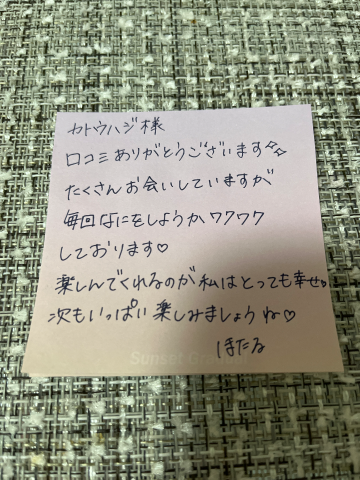 カトウハジ様
口コミありがとうございます✨
たくさんお会いしていますが
毎回なにをしようかワクワク
しております♡
楽しんでくれるのが私はとっても幸せ♡
次もいっぱい楽しみましょうね♡
ほたる